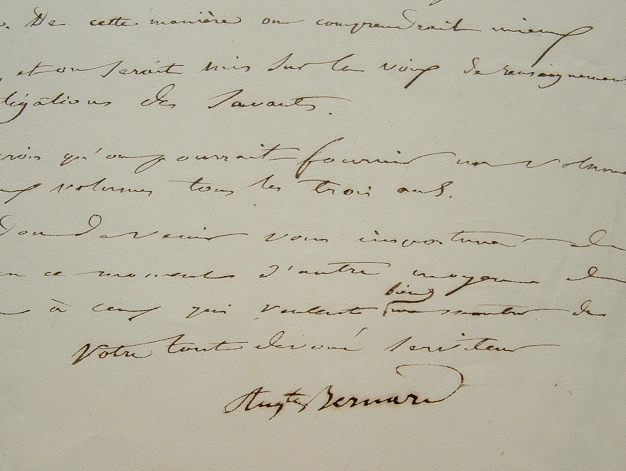 . De cette manière on comprendrait mieux
, et on serait mis sur la voix de renseignemen
tigations des savants.
rois qu'on pourrait fournir un volume
volumes tous les trois ans.
de venir vous importuner de
en ce moment d'autre moyens de
à ceux qui veulent bien de
Votre tout dévoué serviteur
Augte Bernard